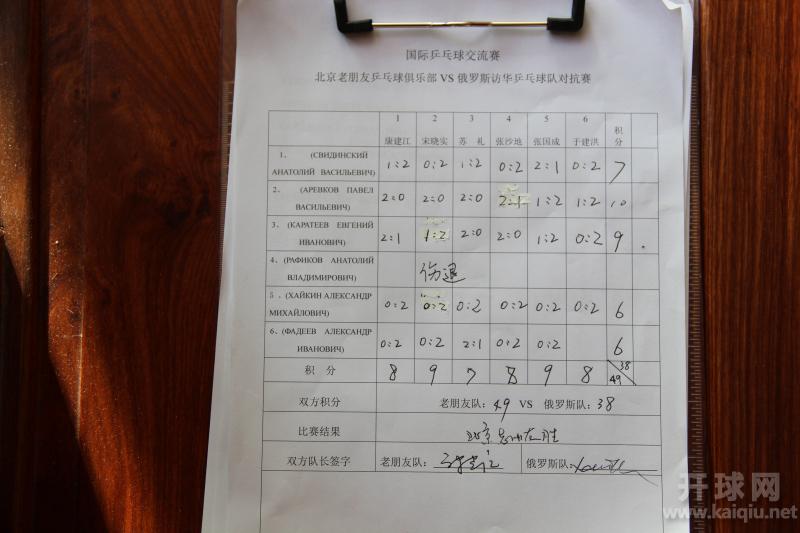 国际乒乓球交流赛
北京老朋友乒乓球俱乐部 VS 俄罗斯访华乒乓球队对抗赛
1 2 3 4 5 6 积分
康建江 宋晓实 苏 礼 张沙地 张国成 于建洪
1、 (СВИДИНСКИЙ АНАТОЛИЙ ВАСИЛЬЕВИЧ) 1:2 0:2 1:2 0:2 2:1 0:2 7
2、 (АРЕВКОВ ПАВЕЛ ВАСИЛЬЕВИЧ) 2:0 2:0 2:0 2:1 1:2 1:2 10
3、(КАРАТЕЕВ ЕВГЕНИЙ ИВАНОВИЧ) 2:1 1:2 2:0 2:0 1:2 0:2 9
4、(РАФИКОВ АНАТОЛИЙ ВЛАДИМИРОВИЧ) 伤退
5 、(ХАЙКИН АЛЕКСАНДР МИХАЙЛОВИЧ) 0:2 0:2 0:2 0:2 0:2 0:2 6
6、(ФАДЕЕВ АЛЕКСАНДР ИВАНОВИЧ) 0:2 0:2 2:1 0:2 0:2 6
积 分 8 9 7 8 9 8 49 38
双方积分 老朋友队: 49 VS 俄罗斯队: 38
比赛结果 北京老朋友胜
双方队长签字 老朋友队: 俄罗斯队:
开球网
www.kaiqiu.net